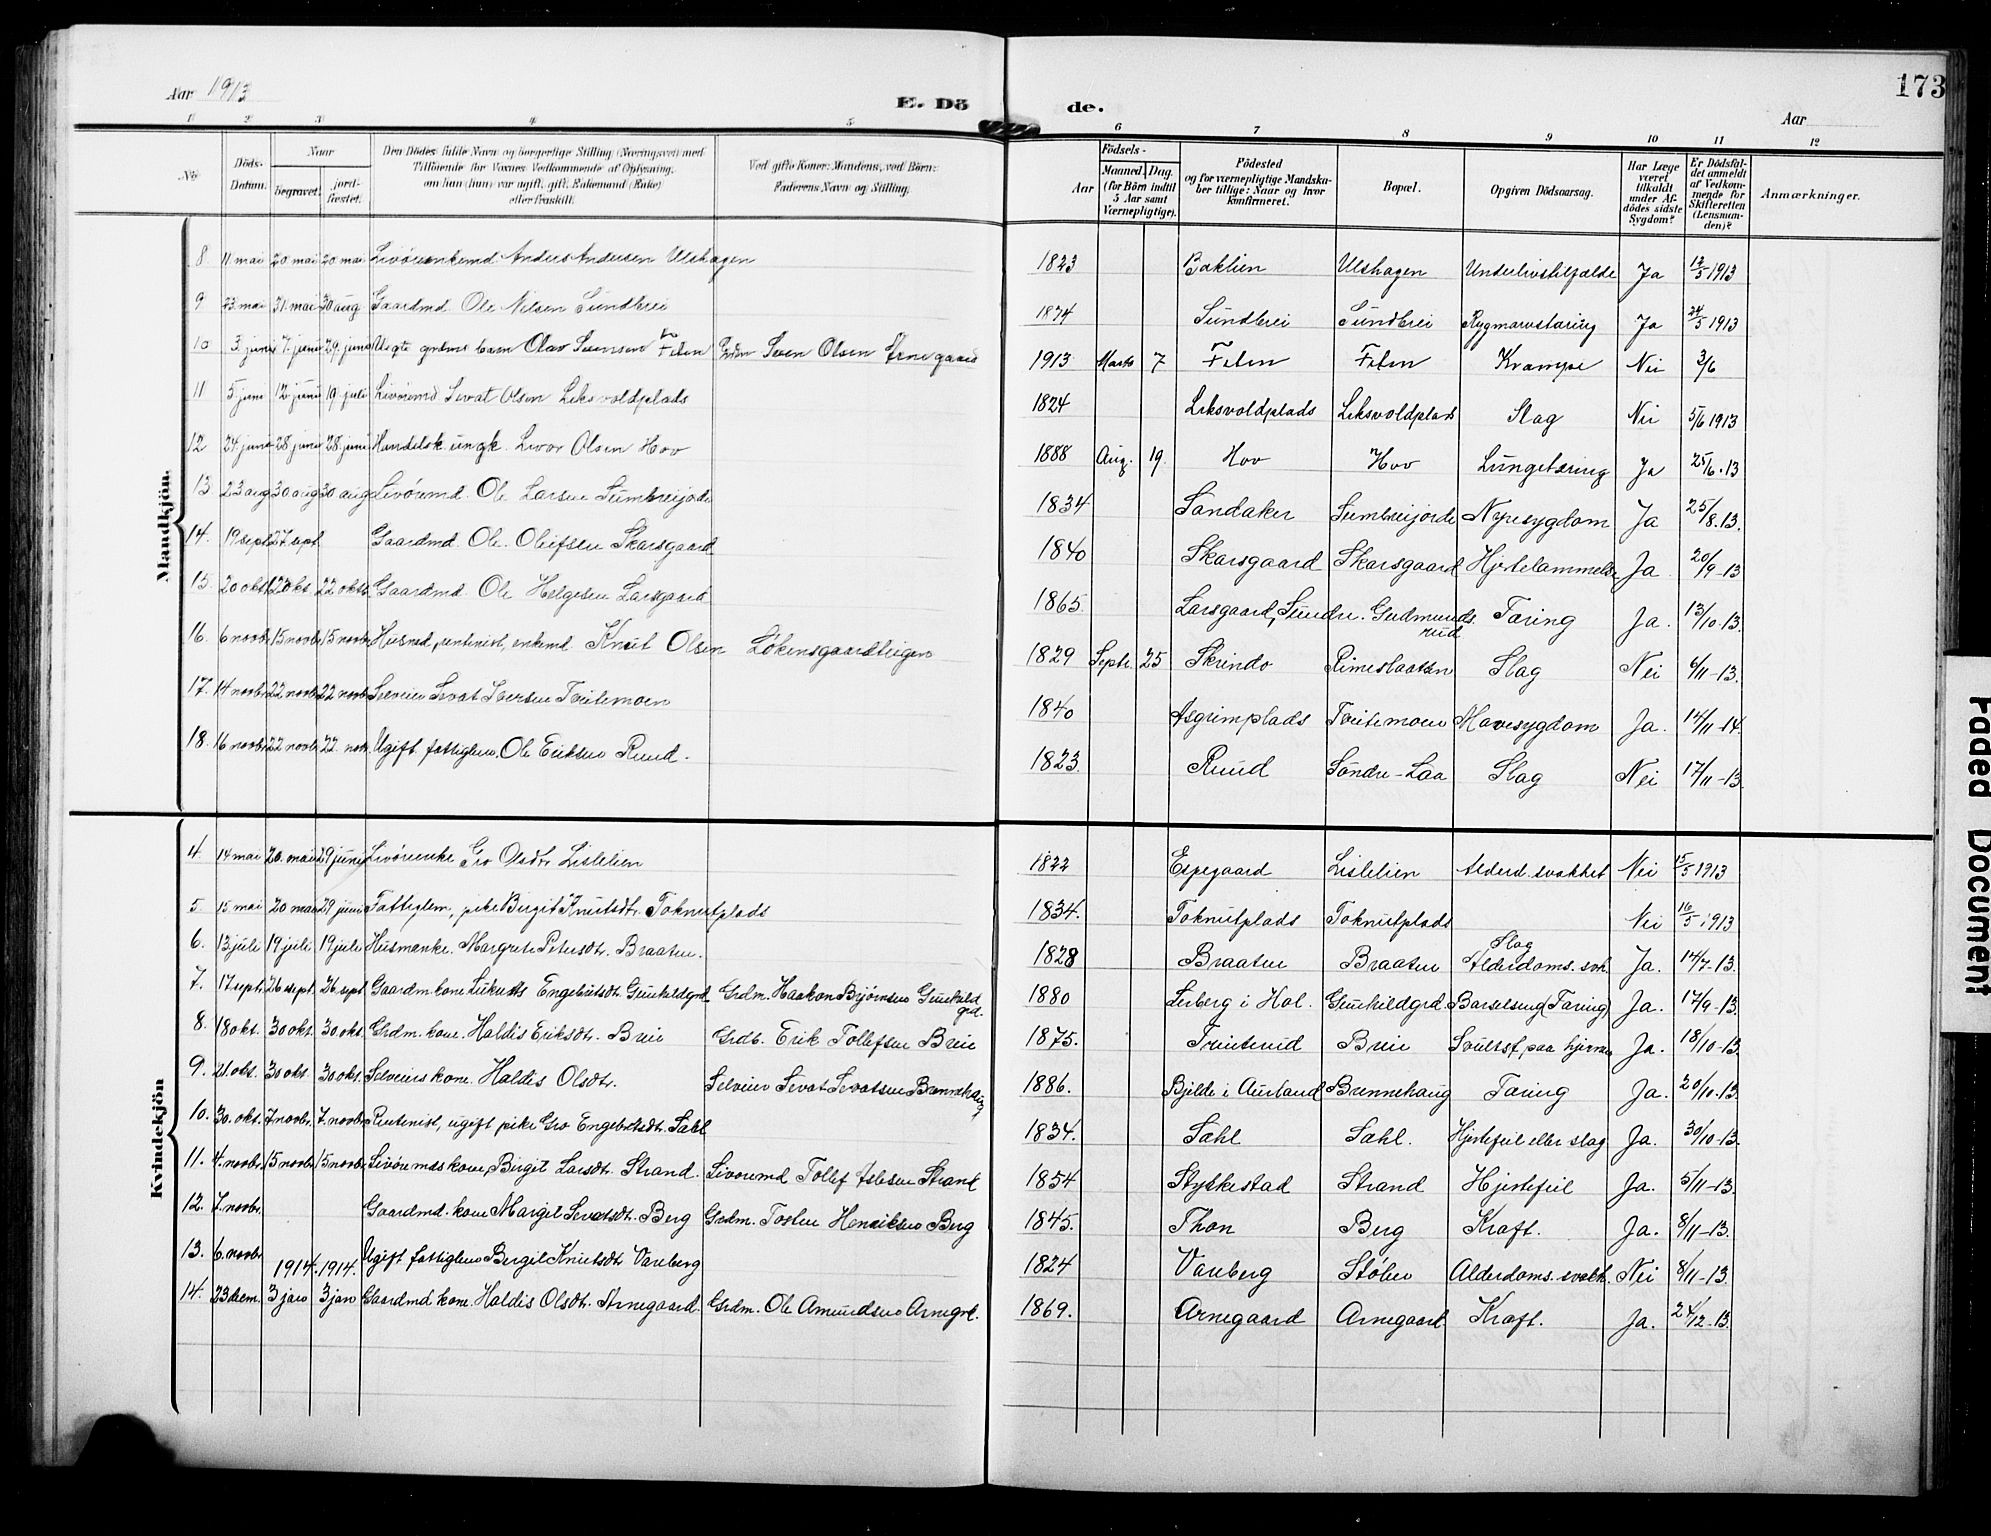 173
Aar 1913
E. Dö de.
Aar
1 2 3 4 5 6 7 8 9 10 11 12
No
Döds-Datum.
Naar
begravet.
jord-fæstet.
Den Dödes fulde Navn og borgerlige Stilling (Næringsvei) med
Tilföiende for Voxnes Vedkommende af Oplysning,
om han (hun) var ugift, gift, Enkemand (Enke)
eller fraskilt.
Ved gifte Koner: Mandens, ved Börn:
Faderens Navn og Stilling.
Födsels-
Aar
Maaned. Dag.
(for Börn indtil
5 Aar samt
Værnepligtige).
Födested
og for værnepligtige Mandska-
ber tillige: Naar og hvor
konfirmeret.
Bopæl.
Opgiven Dödsaarsag.
Har Læge
været
tilkaldt
under Af-
dödes sidste
Sygdom?
Er Dödsfal-
det anmeldt
af Vedkom-
mende for
Skifteretten
(Lensman-
den)?
Anmærkninger.
Mandkjön.
8 11 mai 20 mai 20 mai Livöreenkemd. Anders Andersen Ulshagen 1823 Baklien Ulshagen Underlivstilfælde Ja 12/5 1913
9 23 mai 31. mai 30 aug Gaardmd. Ole Nilsen Sundbrei 1874 Sundbrei Sundbrei Rygmarvstæring Ja 24/5 1913
10 3. juni 7. juni 29. juni Uegte barn Olav Svensen Feten Sven Olsen Arnegaard 1913 Marts 7 Feten Feten Krampe Nei 3/6
11 5. juni 12 juni 19. juli Livöremd Sevat Olsen Leksvoldplads 1824 Leksvoldplads Leksvoldplads Slag Nei 5/6 1913
12 24. juni 28 juni 28 juni Handelsk. ungk. Livor Olsen Hov 1888 Aug. 19. Hov Hov Lungetæring Ja 25/6.13
13 23 aug 30 aug 30 aug Livöremd. Ole Larsen Sumbreijorde 1834 Sandaker Sumbreijorde Nyresygdom Ja 25/8.13.
14. 19 sept 27 sept Gaardmd. Ole Oleifsen Skarsgaard 1840 Skarsgaard Skarsgaard Hjertelammelse Ja 20/9-13
15. 20 okt. 22 okt. 22 oktr. Gaardmd. Ole Helgesen Larsgaard 1865 Larsgaard, Sundre. Gudmunds.rud Tæring Ja. 13/10.13.
16. 6 novbr 15 novbr 15 novbr Husmd, rentenist, enkemd. Knut Olsen Løkensgaardteigen 1829 Septr. 25 Skrindo Rimeslaatten Slag Nei 6/11-13.
17. 14 novbr 22 novbr 22 novbr Selveier Sevat Iversen Tveitemoen 1840 Asgrimplads Tveitemoen Mavesygdom Ja. 14/11-14.
18. 16 novbr. 22 novbr. 22. nov. Ugift fattiglem. Ole Eriksen Ruud. 1823. Ruud Söndre-Laa Slag Nei 17/11-13.
Kvindekjön
4. 14 mai 20. mai 29 juni Livöreenke Gro Olsdtr. Lislelien 1822 Espegaard Lislelien Alderd. svakhet Nei 15/5 1913
5. 15 mai 20 mai 29 juni Fattiglem, pike Birgit Knutsdtr. Toknutplads 1834. Toknutplads Toknutplads Nei 16/5 1913
6. 13 juli 19 juli 19 juli Husmenke. Margrete Petersdtr. Braaten. 1828 Braaten Braaten Slag Alderdoms.svk. Ja. 14/7-13.
7. 17 sept. 26 sept. 26 sept Gaardm. kone Engebretsdt. Gunhildgrd. Grdm. Haakon Bjørnsen Gunhildgrd. 1880 i Hol. Gunhildgrd. Barselseng (Tæring) Ja. 17/9-13.
8. 18 okt. 30 okt. 30 okt. Grdm. kone. Haldis Eriksdtr. Breie Grdb. Erik Tollefsen Breie 1875. Tveiterud Breie Svulst paa hjernen Ja. 18/10-13.
9. 21. okt. 30 okt 30 okt. Selveiers kone. Haldis Olsdtr. Selveier Sevat Sevatsen Brennehaug 1886. Bjelde i Aurland Brennehaug Tæring Ja. 20/10.13.
10. 30. okt. 7 novbr. 7. novbr. Rentenist, ugift pike Gro Engebretsdtr. Sæhl 1834. Sæhl Sæhl. Hjertefeil eller slag Ja. 30/10-13.
11. 4. novbr. 15 novbr 15 novbr. Livöremds kone, Birgit Larsdtr. Strand. Livöremd Tollef Aslesen Strand 1854 Stykkestad Strand Hjertefeil Ja. 5/11-13.
12. 7. novbr. Gaardmd. kone Margit Sevatsdtr. Berg Grdm. Tosten Henriksen Berg 1845. Thon Berg Kræft. Ja. 8/11-13.
13. 6. novbr Ugift fattiglem Bergit Knutsdtr Vareberg 1824 Vareberg Alderdoms.svakh. Nei 8/11-13.
1914. 1914.
14. 23 dem. 3 jan 3 jan Gaardmd kone. Haldis Olsdtr. Arnegaard. Grdm. Ole Amundsen Arnegrd. 1869. Arnegaard Arnegaard. Kræft. Ja. 24/12-13.
Faded Document